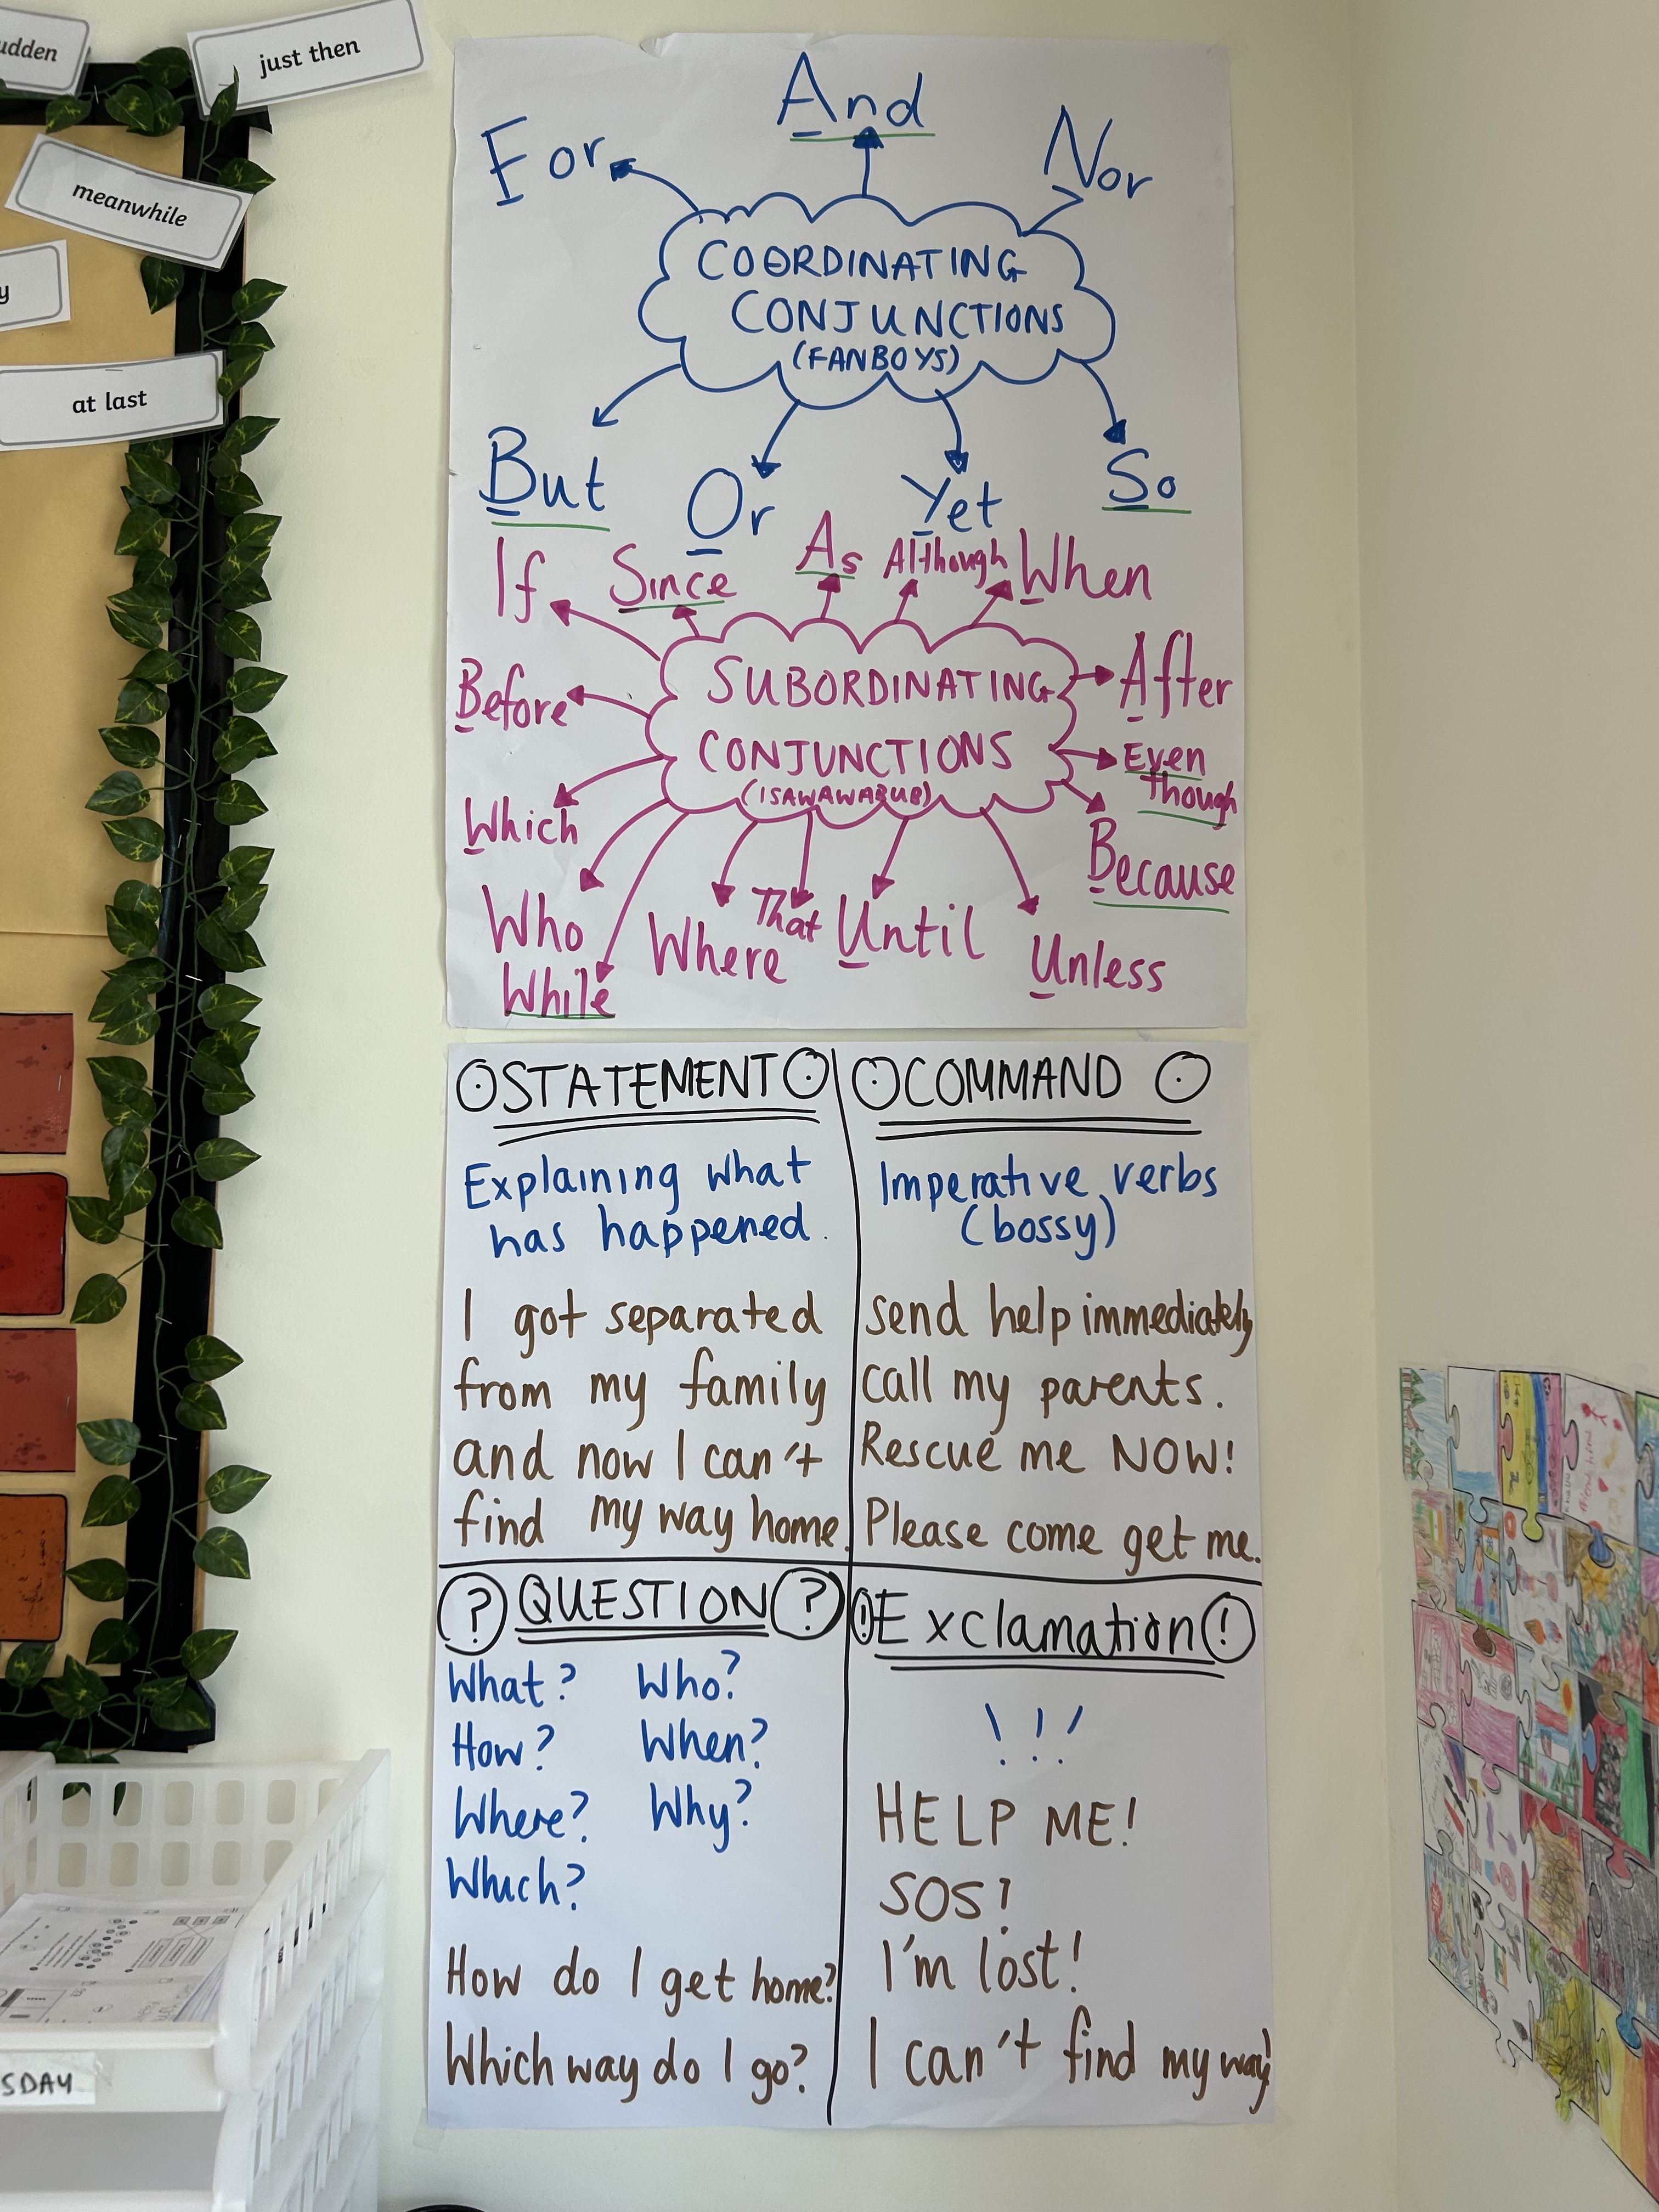 just then
meanwhile
at last
And
For
Nor
COORDINATING
CONJUNCTIONS
(FANBOYS)
But
Or
Yet
So
If
Since
As
Although
When
Before
SUBORDINATING
CONJUNCTIONS
(ISAWAWABUB)
After
Even
though
Which
Because
Who
While
Where
That
Until
Unless
STATEMENT
Explaining what
has happened.
I got separated
from my family
and now I can't
find my way home.
COMMAND
Imperative verbs
(bossy)
send help immediately
call my parents.
Rescue me NOW!
Please come get me.
? QUESTION ?
What? Who?
How? When?
Where? Why?
Which?
How do I get home?
Which way do I go?
! Exclamation !
! ! !
HELP ME!
SOS!
I'm lost!
I can't find my way!
SDAY